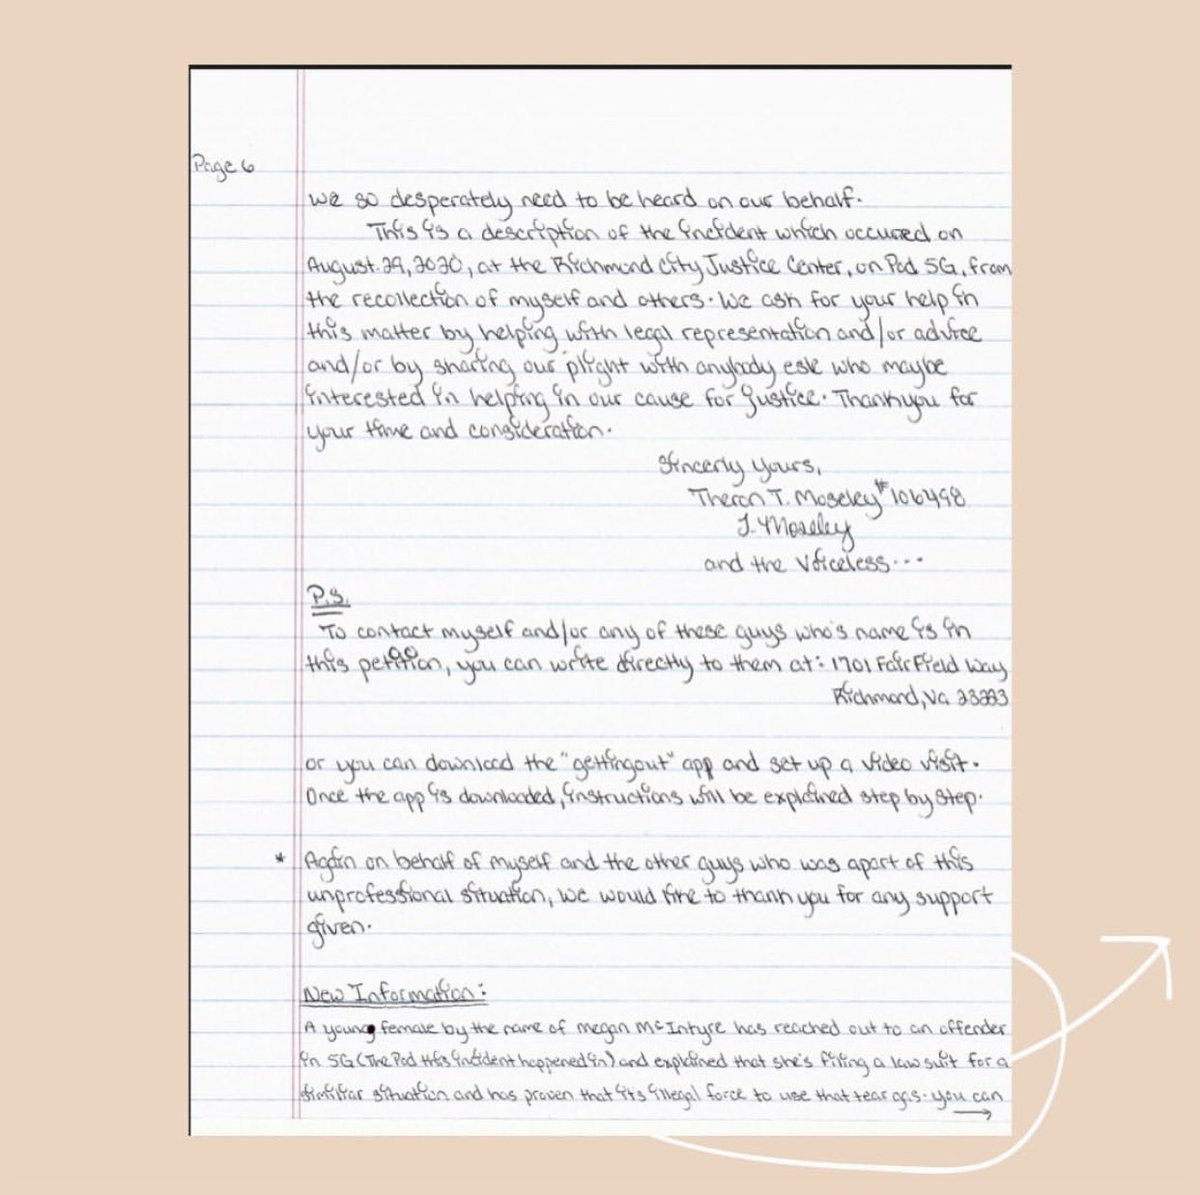 Page 6
we so desperately need to be heard on our behalf.
This is a description of the incident which occured on
August.29,2020, at the Richmond City Justice Center, on Pod 5G, from
the recollection of myself and others. We ask for your help in
this matter by helping with legal representation and/or advice
and/or by sharing our plight with anybody esle who maybe
interested in helping in our cause for justice. Thankyou for
your time and consideration.
Sincerly Yours,
Theron T. Moseley #106498
T. Moseley
and the Voiceless...
P.S.
To contact myself and/or any of these guys who's name is in
this petition, you can write directly to them at: 1701 FairField Way
Richmond, Va 23223
or you can download the "gettingout" app and set up a video visit.
Once the app is downloaded, instructions will be explained step by step.
* Again on behalf of myself and the other guys who was apart of this
unprofessional situation, we would like to thank you for any support
given.
New Information:
A young female by the name of megan McIntyre has reached out to an offender
in 5G (The Pod this incident happened in) and explained that she's filing a law suit for a
similiar situation and has proven that its illegal force to use that tear gas. You can